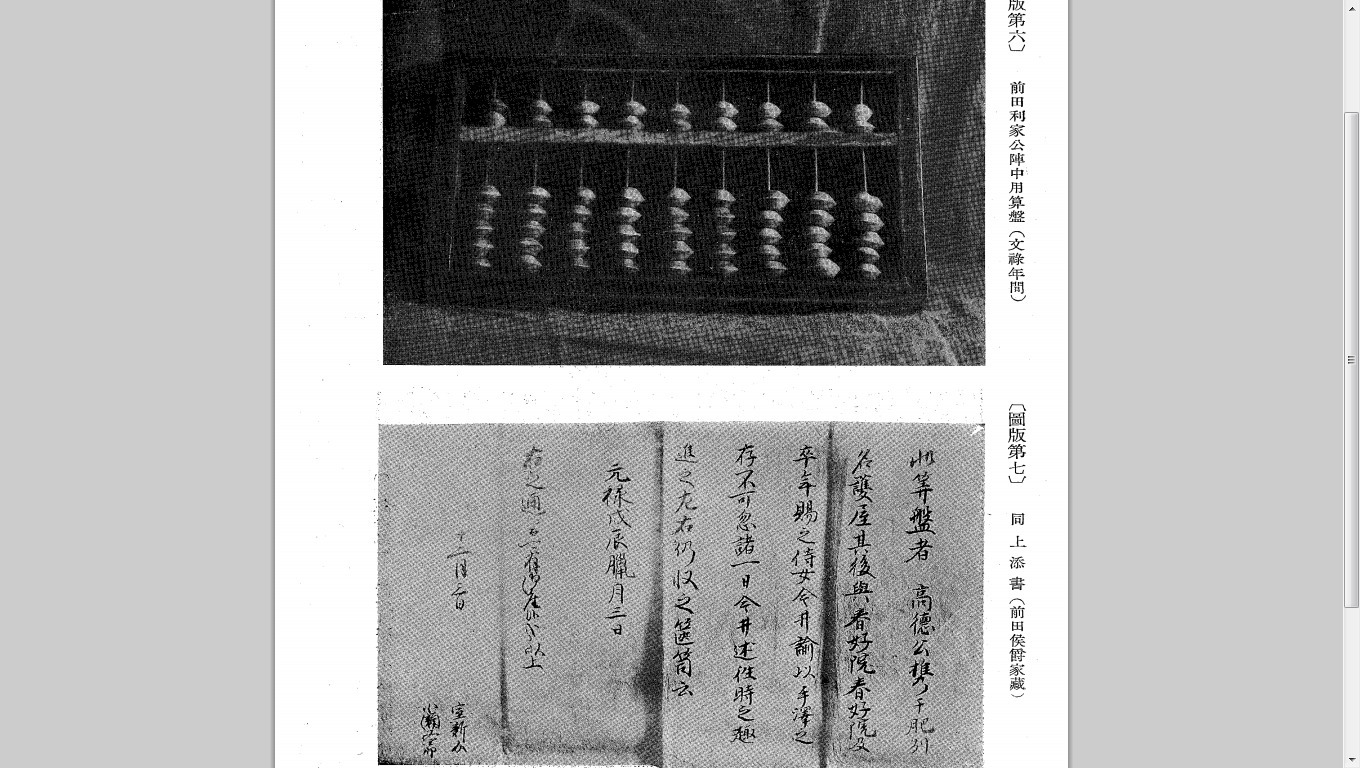 版第六〕 前田利家公陣中用算盤(文祿年間)
〔圖版第七〕 同上添書(前田侯爵家藏)
此算盤者 高德公携于肥列
名護屋其後與春好院春好院又
卒年賜之侍女今井諭以手澤之
存不可忽諸一日今井述往時之趣
進之左右仍収之篋筒云
元禄戊辰臘月三日
右之通
十二月